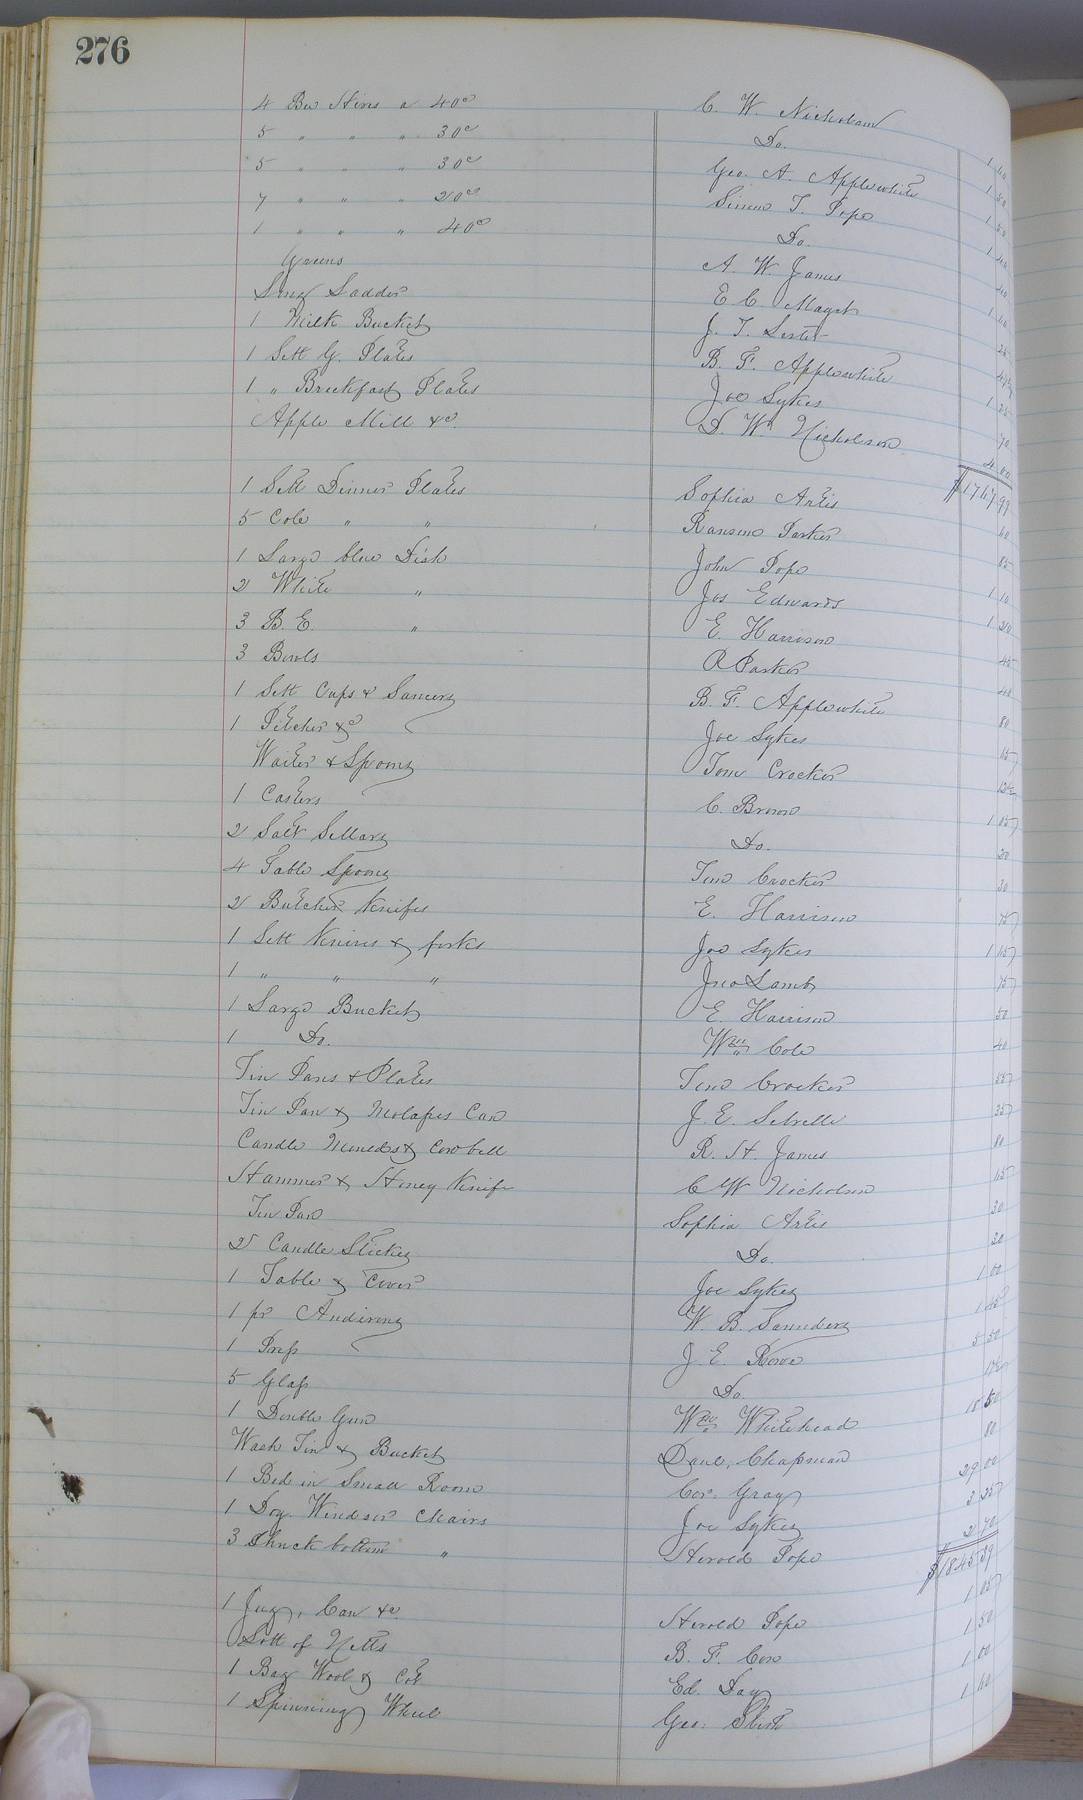 276
4 Bee Hives a 40c C. W. Nicholson 1 60
5 " " " 30c Do. 1 50
5 " " " 30c Geo. A. Applewhite 1 50
7 " " " 20c Simon T. Pope 1 40
1 " " " 40c Do. 40
Greens A. W. James 1 10
Long Ladder E. C. Magett 25
1 Milk Bucket J. T. Lester
1 Sett G. Plates B. F. Applewhite 1 25
1 " Breekfast Plates Joe Sykes 70
Apple Mill &c. D. W. Nicholson 4 00
$1767.99
1 Sett Dinner Plates Sophia Artis 60
5 Cold " " Ransom Parker 85
1 Large blue Dish John Pope 1 10
2 White " Jos Edwards 1 20
3 B. E. " E. Harrison 45
3 Bowls R Parker 40
1 Sett Cups & Saucers B. F. Applewhite 80
1 Pitcher &c Joe Sykes 15
Waiter & Spoons Tom Crocker 12½
1 Casters C. Brown 1 05
2 Salt Sellars Do. 20
4 Table Spoons Tom Crocker 30
2 Butcher Knifes E. Harrison 75
1 Sett Knives & forks Joe Sykes 1 15
1 " " " Jno Lamb 75
1 Large Bucket E. Harrison 50
1 Do. Wm Cole 40
Tin Pans & Plates Tom Crocker 55
Tin Pan & Molasses Can J. E. Sebrelle 35
Candle Moulds & Cow bell R. H. James 80
Hammer & Honey Knife C W Nicholson 15
Tin Pan Sophia Artis 30
2 Candle Sticks Do. 20
1 Table & Cover Joe Sykes 1 00
1 pr Andirons W. B. Saunders 1 45
1 Press J. E. Rowe 5 50
5 Glass Do. 12½
1 Double Gun Wm Whitehead 18 50
Wash Tin & Bucket Danl. Chapman 80
1 Bed in Small Room Cor. Gray 29 00
1 Doz. Windsor Chairs Joe Sykes 3 25
3 Shuck bottom " Herold Pope 2 70
$1845 39
1 Jug, Can &c. Herold Pope 1 05
Lott of Netts B. F. Cox 1 50
1 Bag Wool & Cot Ed. Day 1 00
1 Spinning Wheel Geo: Blish 1 10